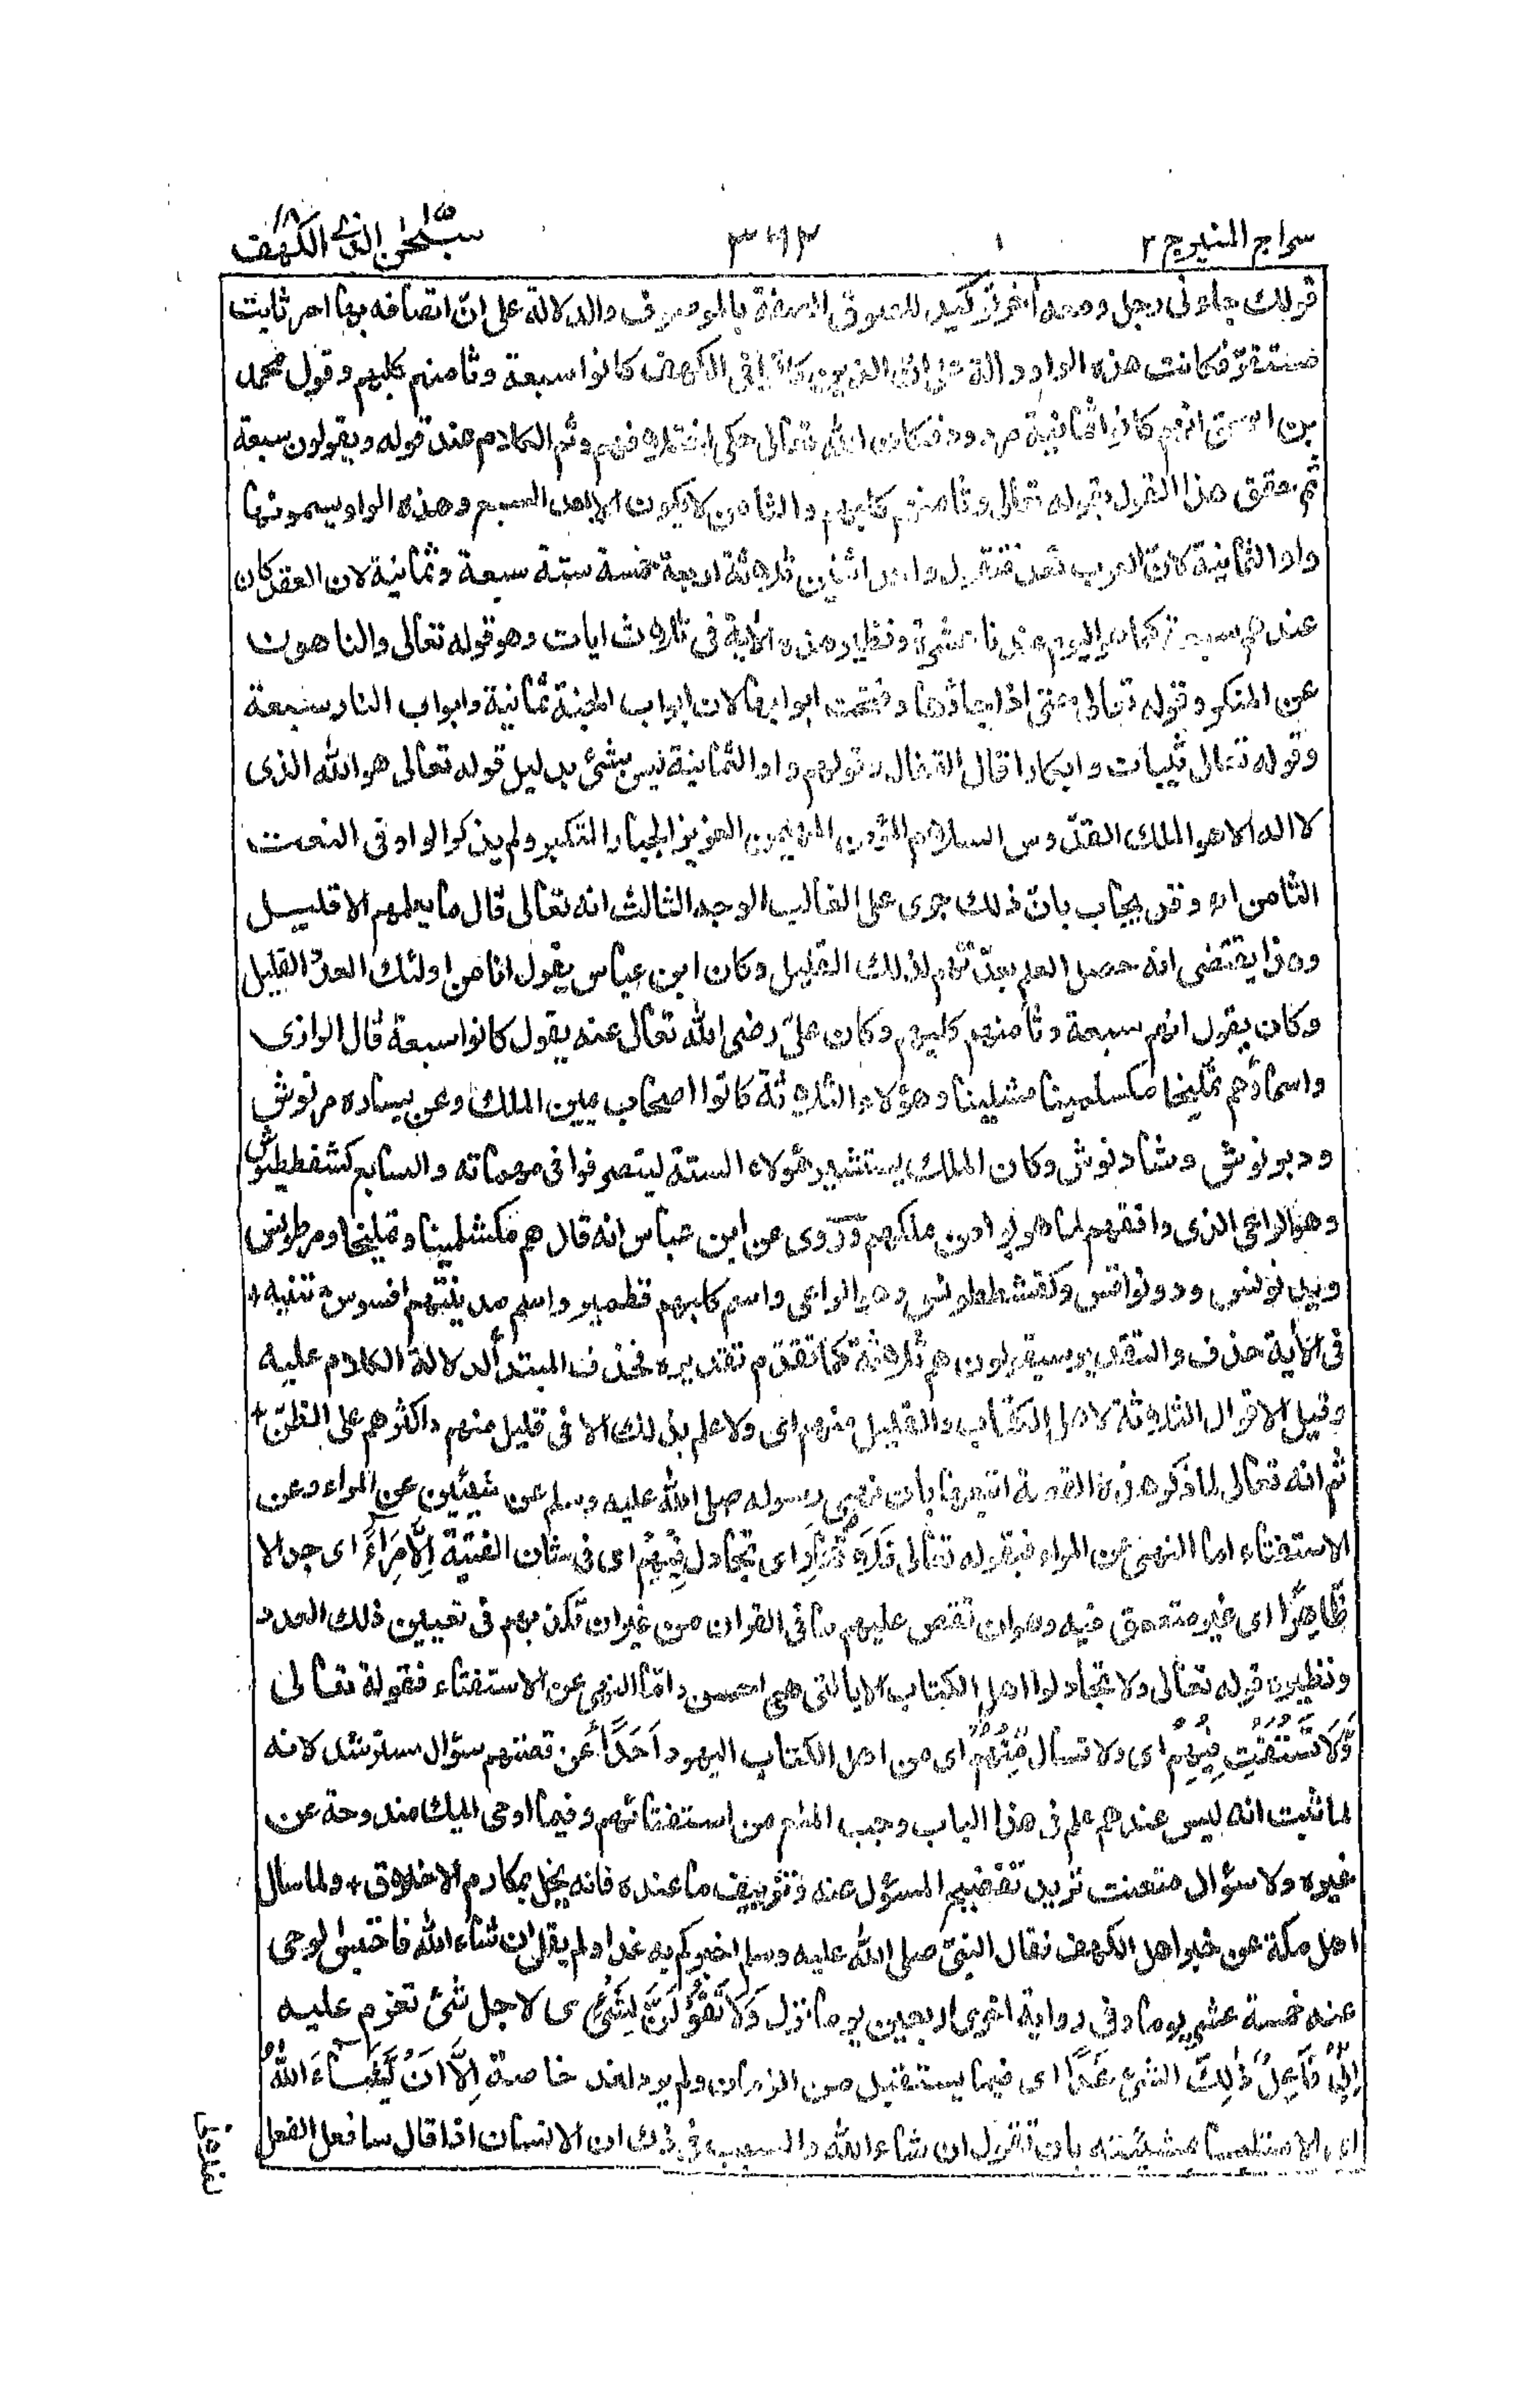 سراج المنير ج ٢
٣٦٣
سبحن الذى ١٥ الكهف ١٨
قولك جاءنى رجل ومعه أخر توكيد للصوق الصفة بالموصوف والدلالة على انّ اتصافه بها امر ثابت
مستقرّ فكانت هذه الواو دالة على انّ الذين كانوا فى الكهف كانوا سبعة وثامنهم كلبهم وقول محمد
بن اسحق انهم كانوا ثمانية مردود فكان الله تعالى حكى اختلافهم وتم الكلام عند قوله ويقولون سبعة
ثم حقق هذا القول بقوله تعالى وثامنهم كلبهم والثامن لا يكون الا بعد السبع وهذه الواو يسمونها
واو الثمانية لانّ العرب تعدّ فتقول واحد اثنين ثلاثة اربعة خمسة ستة سبعة وثمانية لان العقد كان
عندهم سبعة كما هو اليوم عندنا عشرة ونظير هذه الأية فى ثلاث ايات وهو قوله تعالى والناهون
عن المنكر وقوله تعالى حتى اذا جاؤها وفتحت ابوابها لان ابواب الجنة ثمانية وابواب النار سبعة
وقوله تعالى ثيبات وابكارا قال القفال وقولهم واو الثمانية ليس بشئ بدليل قوله تعالى هو الله الذى
لا اله الا هو الملك القدّوس السلام المؤمن المهيمن العزيز الجبار المتكبر ولم يذكر الواو فى النعت
الثامن اه وقد يجاب بانّ ذلك جرى على الغالب الوجه الثالث انه تعالى قال ما يعلمهم الا قليل
وهذا يقتضى انه حصل العلم بعدّتهم لذلك القليل وكان ابن عباس يقول انا من اولئك العدد القليل
وكان يقول انهم سبعة وثامنهم كلبهم وكان علىّ رضى الله تعالى عنه يقول كانوا سبعة قال الرازى
واسماؤهم تمليخا مكسلمينا مشلينا وهؤلاء الثلاثة كانوا اصحاب يمين الملك وعن يساره مرنوش
ودبرنوش وشاذنوش وكان الملك يستشير هؤلاء الستة ليتصرفوا فى مهماته والسابع كشفططيوش
وهو الراعى الذى وافقهم لما هربوا من ملكهم وروى عن ابن عباس انه قال هم مكشلمينا وتمليخا ومرطونس
وبينونس ودونوانس وكفشططونس وهو الراعى واسم كلبهم قطمير واسم مدينتهم افسوس * تنبيه *
فى الأية حذف والتقدير سيقولون هم ثلاثة كما تقدّم تقديره فحذف المبتدأ لدلالة الكلام عليه
وقيل الاقوال الثلاثة لاهل الكتاب والقليل منهم اى ولا علم بذلك الا فى قليل منهم واكثرهم على الظنّ +
ثم انه تعالى لما ذكر هذه القصة اتبعها بان نهى رسوله صلى الله عليه وسلم عن شيئين عن المراء وعن
الاستفتاء اما النهى عن المراء فبقوله تعالى فَلَا تُمَارِ اى تجادل فِيْهِمْ اى فى شان الفتية اِلَّا مِرَاءً اى جدالا
ظَاهِرًا اى غير متعمق فيه وهو ان تقص عليهم ما فى القران من غير ان تكذبهم فى تعيين ذلك العدد
ونظيره قوله تعالى ولا تجادلوا اهل الكتاب الا بالتى هى احسن وامّا النهى عن الاستفتاء فقوله تعالى
وَّلَا تَسْتَفْتِ فِيْهِمْ اى ولا تسأل مِّنْهُمْ اى من اهل الكتاب اليهود اَحَدًا عن قصتهم سؤال مسترشد لانه
لما ثبت انه ليس عندهم علم فى هذا الباب وجب المنع من استفتائهم وفيما اوحى اليك مندوحة عن
غيره ولا سؤال متعنت تريد تفضيح المسؤل عنه وتزييف ما عنده فانه يخل بمكارم الاخلاق + ولما سأل
اهل مكة عن خبر اهل الكهف فقال النبىّ صلى الله عليه وسلم اخبركم به غدا ولم يقل ان شاء الله فاحتبس الوحى
عنه خمسة عشر يوما وفى رواية اخرى اربعين يوما نزل وَلَا تَقُوْلَنَّ لِشَىْءٍ اى لاجل شئ تعزم عليه
اِنِّىْ فَاعِلٌ ذٰلِكَ الشئ غَدًا اى فيما يستقبل من الزمان ولم يرد الغد خاصة اِلَّا اَنْ يَّشَاءَ اللهُ
اى الا متلبسا بمشيئته بان تقول ان شاء الله والسبب فى ذلك ان الانسان اذا قال سأفعل الفعل